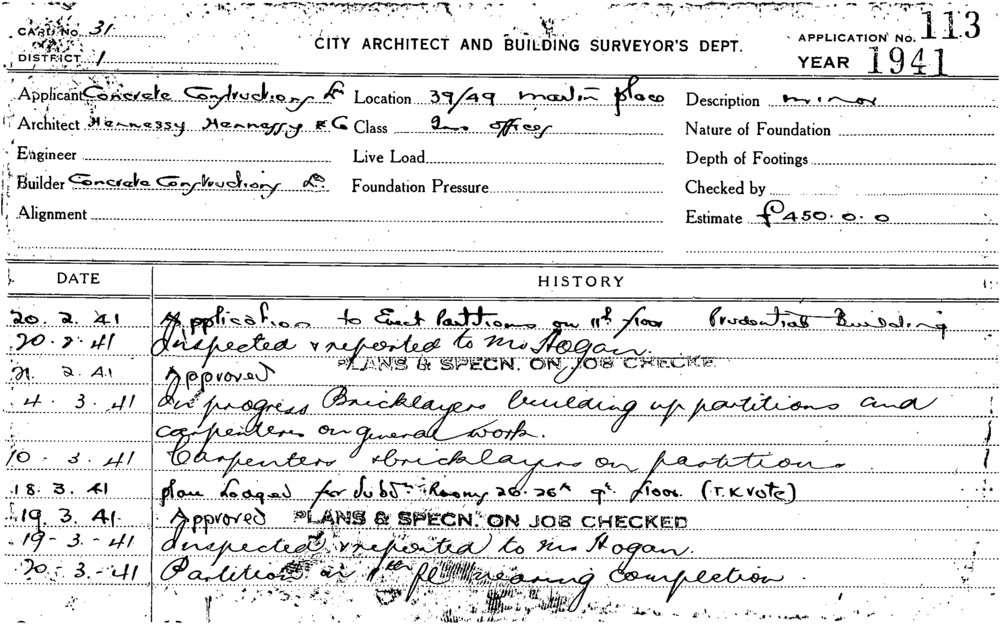 CARD No. 31
DISTRICT 1
CITY ARCHITECT AND BUILDING SURVEYOR'S DEPT.
APPLICATION No. 113
YEAR 1941
Applicant Concrete Constructions Ld Location 39/49 Martin place Description minor
Architect Hennessy Hennessy & Co Class Ins offices Nature of Foundation
Engineer Live Load Depth of Footings
Builder Concrete Constructions Ld. Foundation Pressure Checked by
Alignment Estimate £450.0.0
DATE HISTORY
20. 2. 41 Application to Erect Partitions on 11th floor Prudential Building
20. 2. 41 Inspected & reported to Mr Hogan.
21. 2. 41 Approved PLANS & SPECN. ON JOB CHECKE
4. 3. 41 In progress Bricklayers building up partitions and
carpenters on general work.
10. 3. 41 Carpenters & bricklayers on partitions
18. 3. 41 plan Lodged for Subd. Rooms 26. 26A 9th floor. (T.K
19. 3. 41. Approved PLANS & SPECN. ON JOB CHECKED
19-3-41 Inspected & reported to Mr Hogan.
20-3-41 Partition on 11th fl nearing completion.